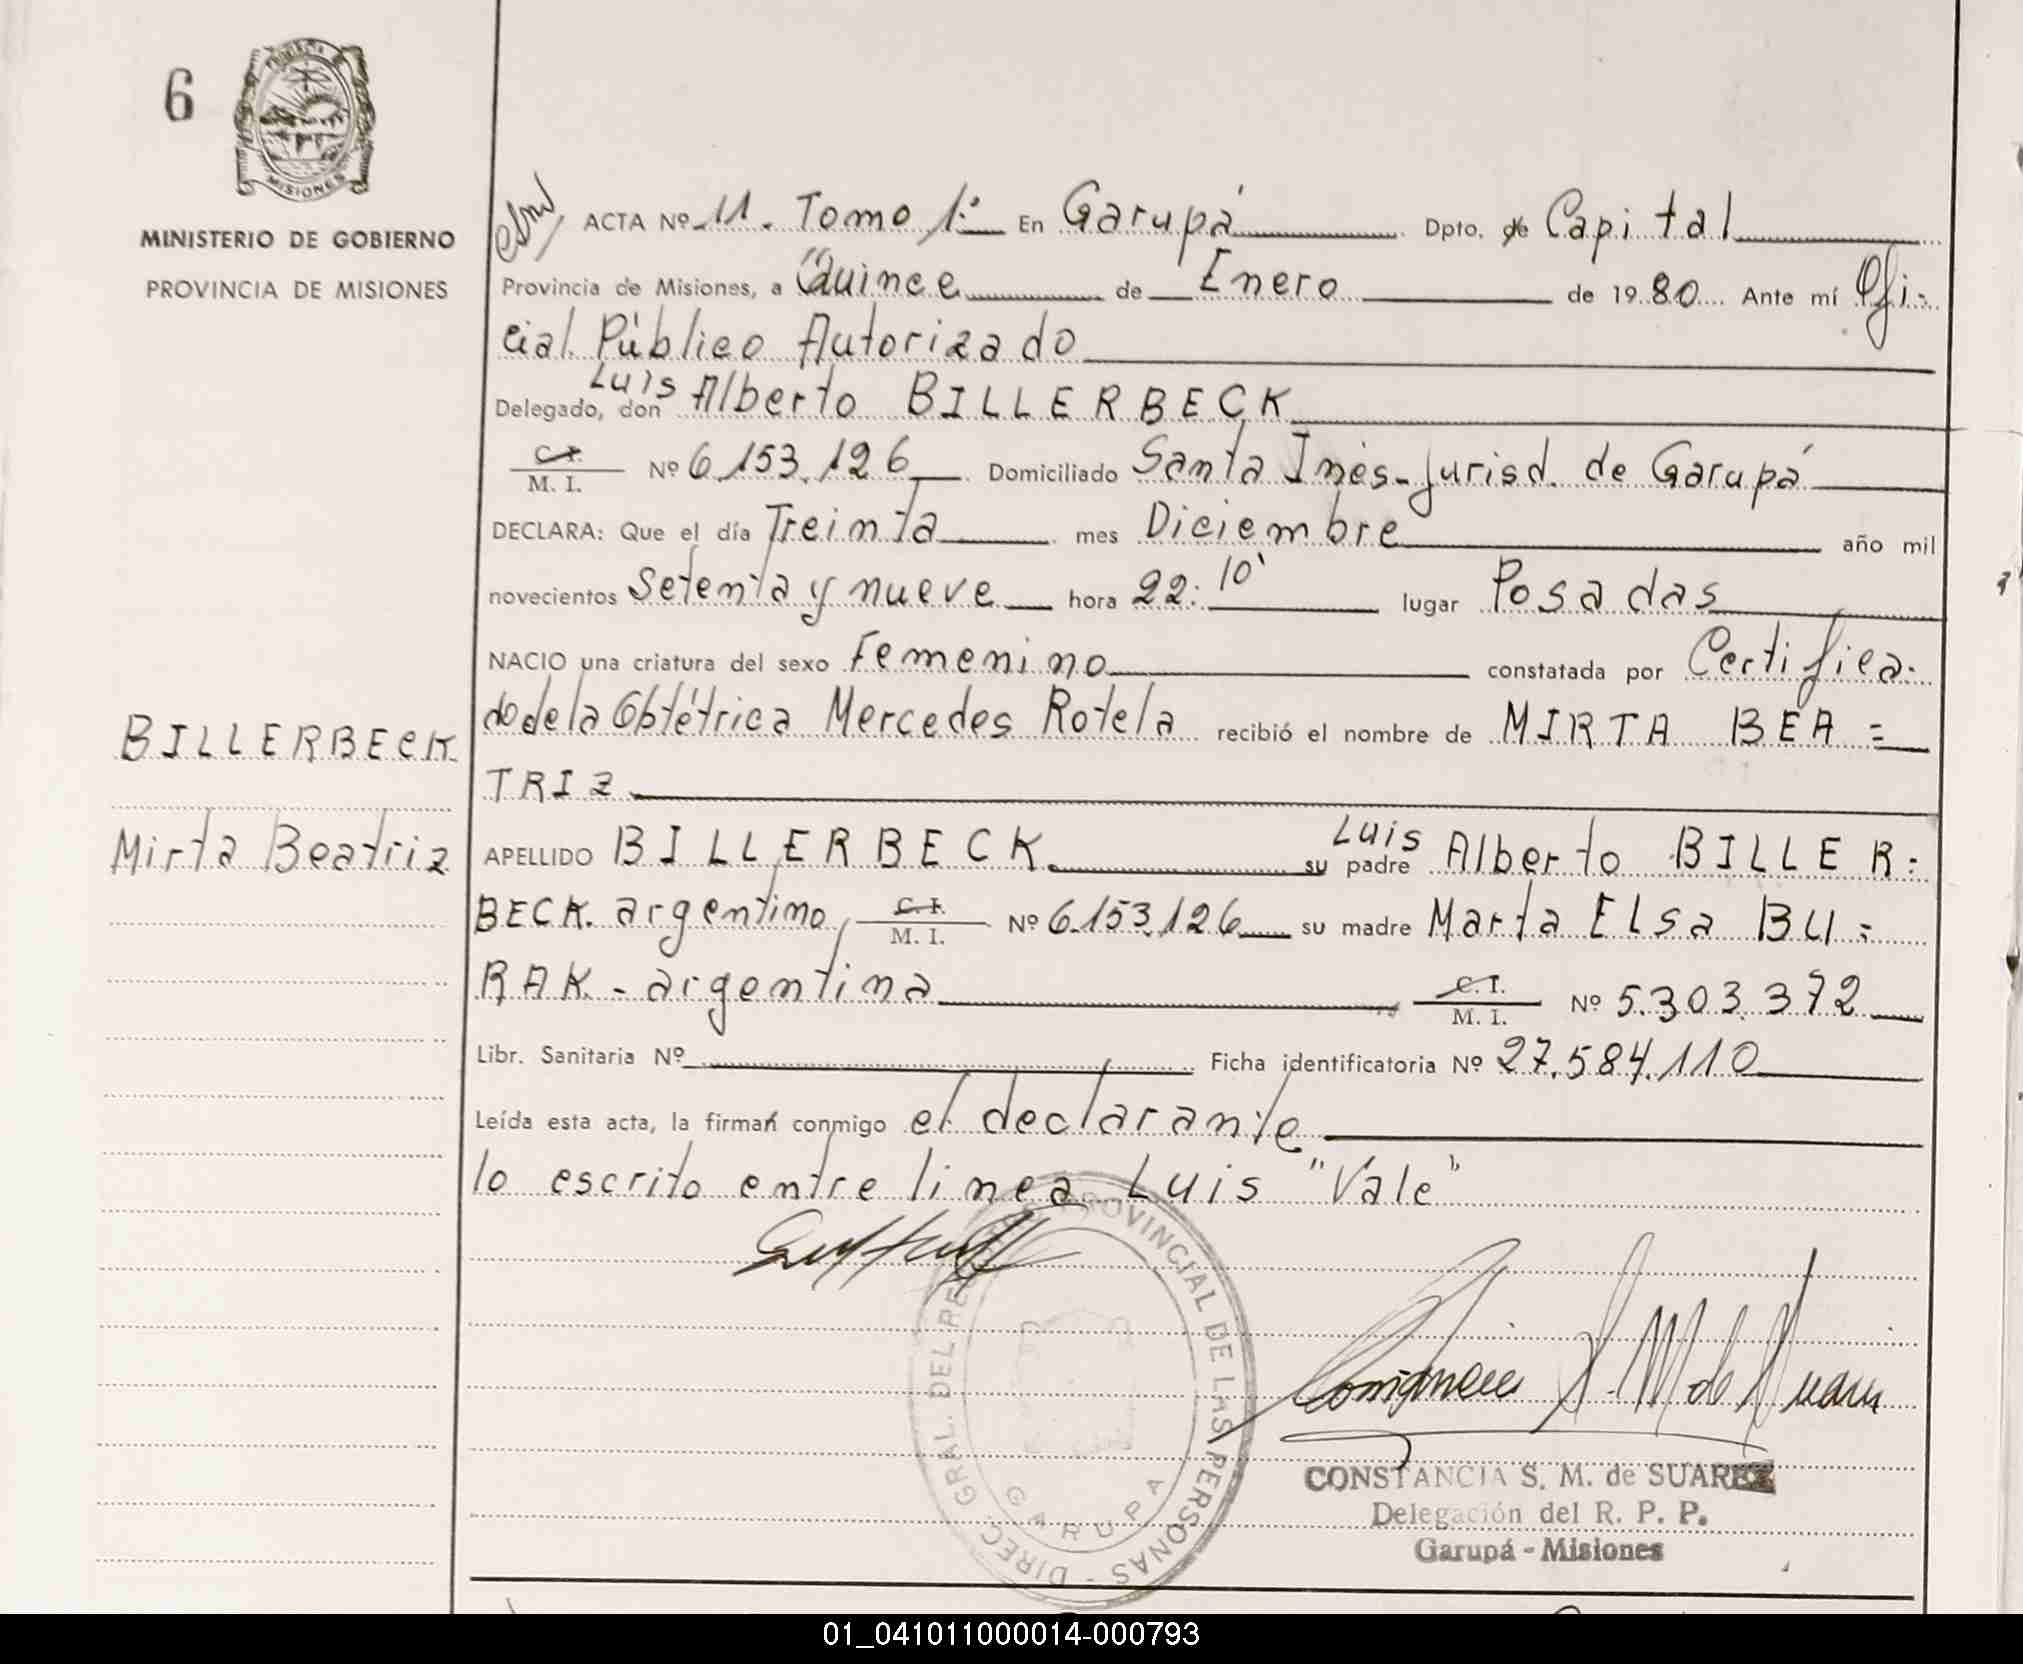 6
PROVINCIA
MISIONES
MINISTERIO DE GOBIERNO
PROVINCIA DE MISIONES
BILLERBECK
Mirta Beatriz
ACTA Nº 11. Tomo 1º En Garupá Dpto. de Capital
Provincia de Misiones, a Quince de Enero de 1980 Ante mí Ofi-
cial Público Autorizado
Luis
Delegado, don Alberto BILLERBECK
C. I.
M. I. Nº 6.153.126 Domiciliado Santa Inés-jurisd. de Garupá
DECLARA: Que el día Treinta mes Diciembre año mil
novecientos Setenta y nueve hora 22:10' lugar Posadas
NACIO una criatura del sexo Femenino constatada por Certifica-
do de la Obtétrica Mercedes Rotela recibió el nombre de MIRTA BEA=
TRIZ
Luis
APELLIDO BILLERBECK. su padre Alberto BILLER=
BECK. argentino, C. I. M. I. Nº 6.153.126 su madre Marta Elsa BU=
RAK - argentina C. I. M. I. Nº 5.303.372
Libr. Sanitaria Nº Ficha identificatoria Nº 27.584.110
Leída esta acta, la firman conmigo el declarante
lo escrito entre linea Luis "Vale"
DIREC. GRAL. DEL REGISTRO PROVINCIAL DE LAS PERSONAS -
GARUPA
CONSTANCIA S. M. de SUAREZ
Delegación del R. P. P.
Garupá - Misiones
01_041011000014-000793